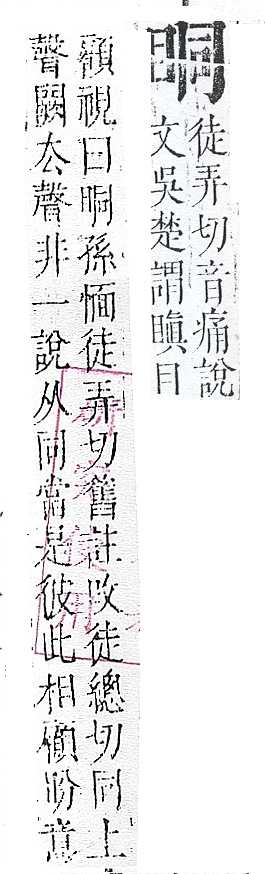 眮
徒弄切音痛說
文吳楚謂瞋目
顧視曰眮孫愐徒弄切舊註改徒總切同上
聲闕厺聲非一說从同當是彼此相顧盼意